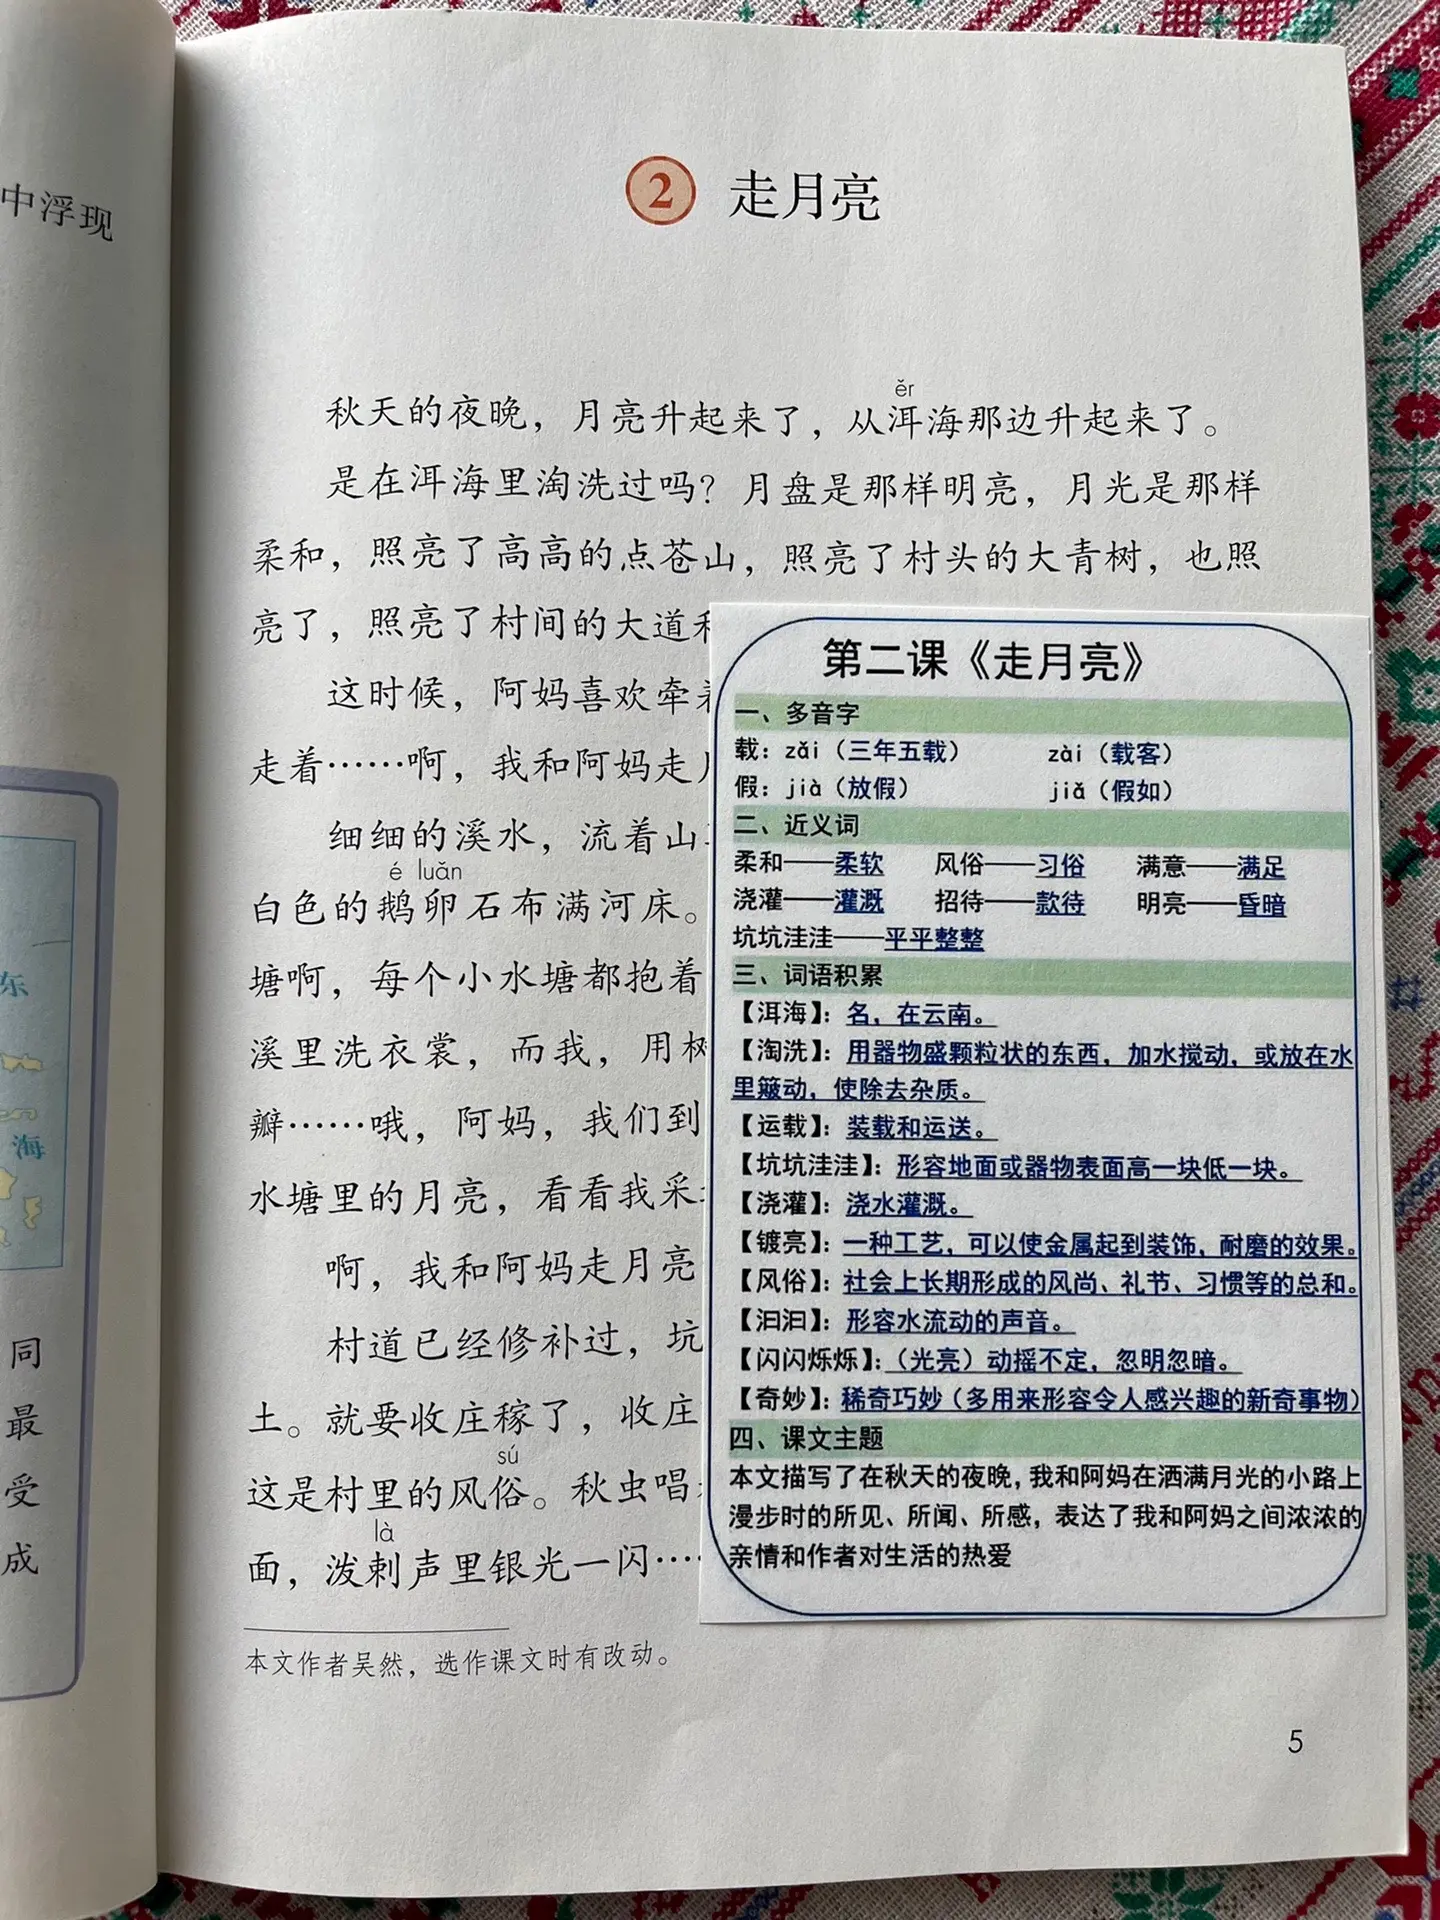 中浮现
东
海
同
最
受
成
2 走月亮
ěr
秋天的夜晚，月亮升起来了，从洱海那边升起来了。
是在洱海里淘洗过吗？月盘是那样明亮，月光是那样
柔和，照亮了高高的点苍山，照亮了村头的大青树，也照
亮了，照亮了村间的大道和
这时候，阿妈喜欢牵着
走着……啊，我和阿妈走月
细细的溪水，流着山
é luǎn
白色的鹅卵石布满河床。
塘啊，每个小水塘都抱着
溪里洗衣裳，而我，用树
瓣……哦，阿妈，我们到
水塘里的月亮，看看我采
啊，我和阿妈走月亮
村道已经修补过，坑
土。就要收庄稼了，收庄
sú
这是村里的风俗。秋虫唱着
là
面，泼剌声里银光一闪……
本文作者吴然，选作课文时有改动。
5
第二课《走月亮》
一、多音字
载：zǎi（三年五载） zài（载客）
假：jià（放假） jiǎ（假如）
二、近义词
柔和——柔软 风俗——习俗 满意——满足
浇灌——灌溉 招待——款待 明亮——昏暗
坑坑洼洼——平平整整
三、词语积累
【洱海】：名，在云南。
【淘洗】：用器物盛颗粒状的东西，加水搅动，或放在水
里簸动，使除去杂质。
【运载】：装载和运送。
【坑坑洼洼】：形容地面或器物表面高一块低一块。
【浇灌】：浇水灌溉。
【镀亮】：一种工艺，可以使金属起到装饰，耐磨的效果。
【风俗】：社会上长期形成的风尚、礼节、习惯等的总和。
【汩汩】：形容水流动的声音。
【闪闪烁烁】：（光亮）动摇不定，忽明忽暗。
【奇妙】：稀奇巧妙（多用来形容令人感兴趣的新奇事物）
四、课文主题
本文描写了在秋天的夜晚，我和阿妈在洒满月光的小路上
漫步时的所见、所闻、所感，表达了我和阿妈之间浓浓的
亲情和作者对生活的热爱